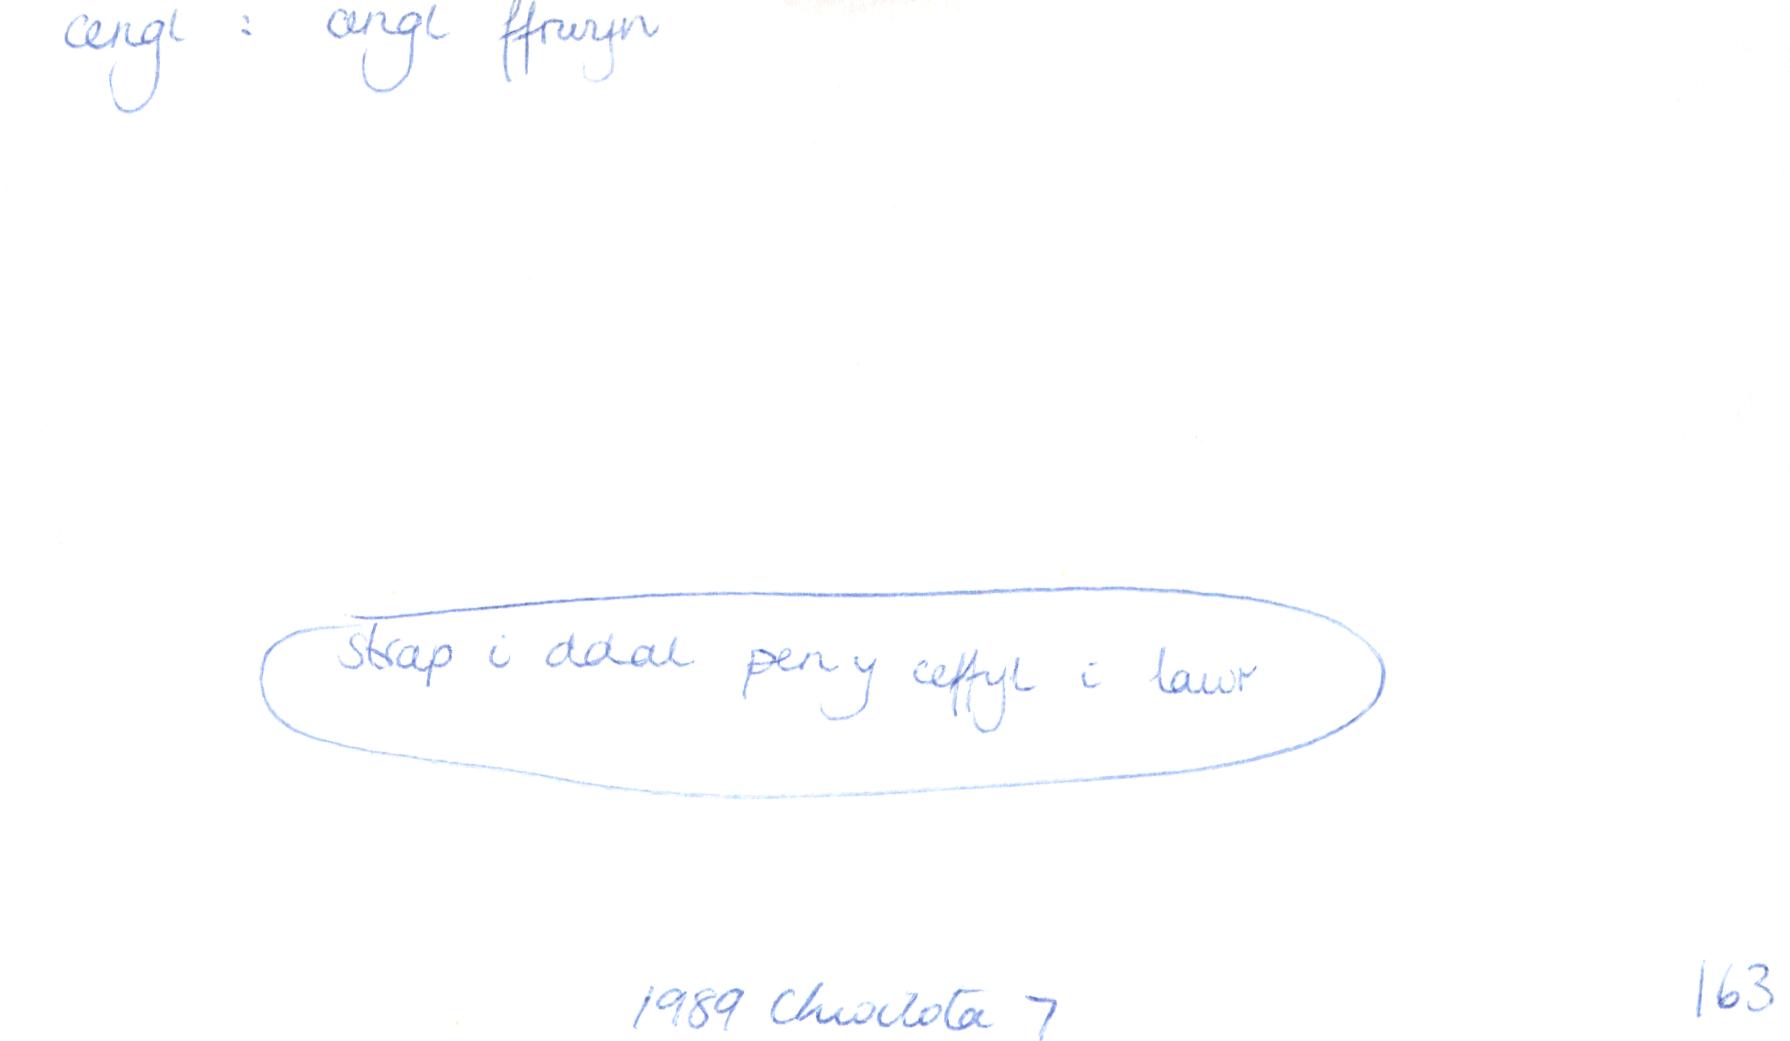 cengl : cengl ffrwyn
strap i ddal pen y ceffyl i lawr
1989 Chwilota 7
163